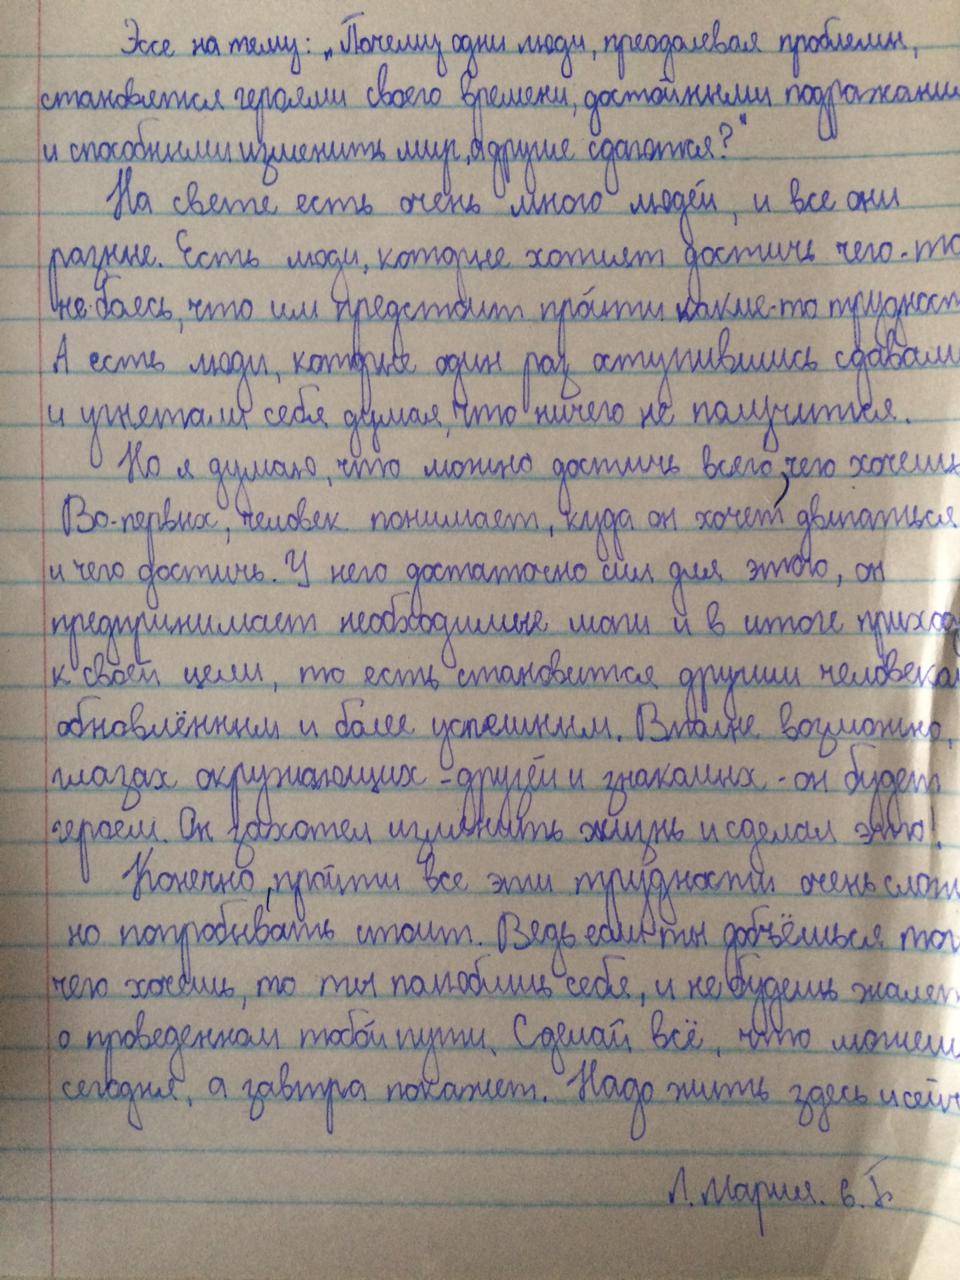 Эссе на тему: „Почему одни люди, преодалевая проблемы,
становятся героями своего времени, достойными подражани
и способными изменить мир, а другие сдаются?"
На свете есть очень много людей, и все они
разные. Есть люди, которые хотият достичь чего-то
не боясь, что им предстоит пройти какие-то трудност
А есть люди, которые один раз оступившись сдавали
и угнетали себя думая, что ничего не получится.
Но я думаю, что можно достичь всего, чего хочешь
Во-первых, человек понимает, куда он хочет двигаться
и чего достичь. У него достаточно сил для этого, он
предпринимает необходимые шаги и в итоге приход
к своей цели, то есть становится другим человеком
обновлённым и более успешным. Вполне возможно,
глазах окружающих - друзей и знакомых - он будет
героем. Он захотел изменить жизнь и сделал это!
Конечно, пройти все эти трудности очень слож
но попробывать стоит. Ведь если ты добъёшься тог
чего хочешь, то ты полюбишь себя, и не будешь жалет
о проведенном тобой пути. Сделай всё, что можеш
сегодня, а завтра покажет. Надо жить здесь и сейч
Л. Мария. 6. Б